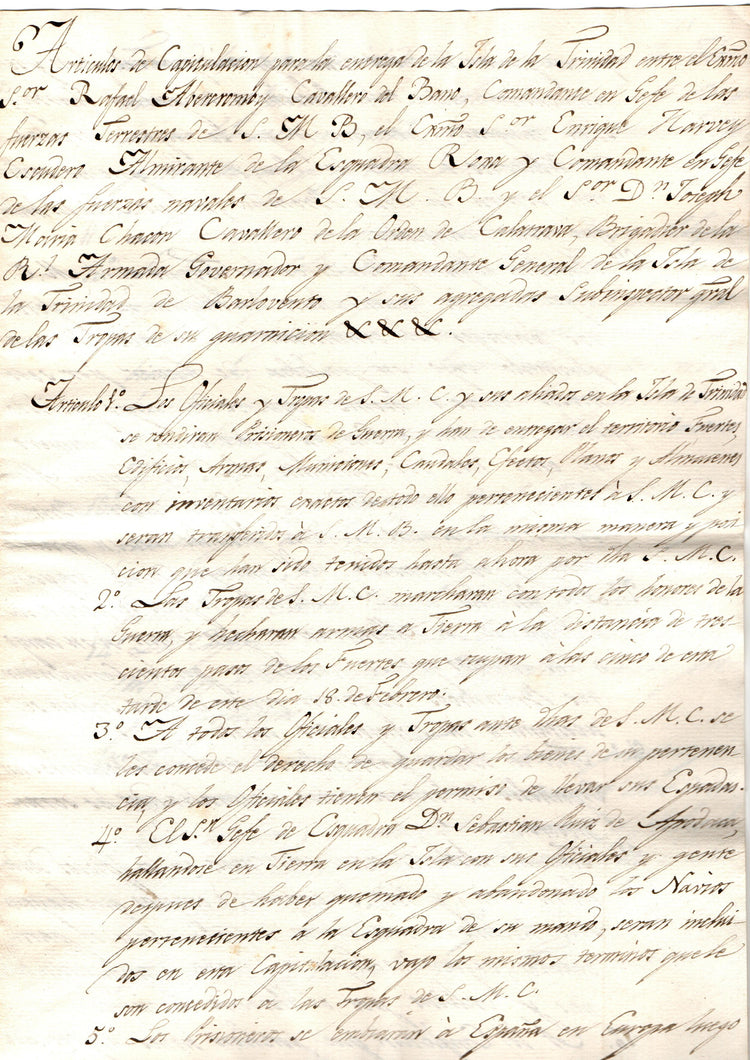 Articulos de Capitulacion para la entrega de la Isla de la Trinidad entre el Exmo
S.or Rafael Abercromey Cavallero del Bano, Comandante en Gefe de las
fuerzas Terrestres de S. M B, el Exmo S.or Enrique Harvey
Escudero Almirante de la Esquadra Roxa y Comandante en Gefe
de las fuerzas navales de S. M. B. y el S.or D.n Joseph
Maria Chacon Cavallero de la Orden de Calatrava, Brigadier de la
R.l Armada Governador y Comandante General de la Isla de
la Trinidad de Barlovento y sus agregados Subinspector Gral
de las Tropas de su guarnicion & & &.
Articulo 1.º Los Oficiales y Tropas de S. M. C. y sus aliados en la Isla de Trinidad
se rendiran Prisioneros de Guerra, y han de entregar el territorio Fuertes,
Edificios, Armas, Municiones, Caudales, Efectos, Planos y Almacenes
con inventarios exactos de todo ello pertenecientes à S. M. C. y
seran trasferidos à S. M. B. en la misma manera y poci
cion que han sido tenidos hasta ahora por dha S. M. C.
2.º Las Tropas de S. M. C. marcharan con todos los honores de la
Guerra, y hecharan armas a Tierra à la distancia de tres
cientos pasos de los Fuertes que ocupan à las cinco de esta
tarde de este dia 18 de Febrero.
3.º A todos los Oficiales y Tropas ante dhas de S. M. C. se
les concede el derecho de guardar los bienes de su pertenen
cia, y los Oficiales tienen el permiso de llevar sus Espadas.
4.º El S.r Gefe de Esquadra D.n Sebastian Ruiz de Apodaca,
hallandose en Tierra en la Isla con sus Oficiales y gente
despues de haber quemado y abandonado los Navios
pertenecientes a la Esquadra de su mando, seran inclui
dos en esta Capitulacion, vajo los mismos terminos que le
son concedidos a las Tropas de S. M. C.
5.º Los Prisioneros se embiaràn à España en Europa luego